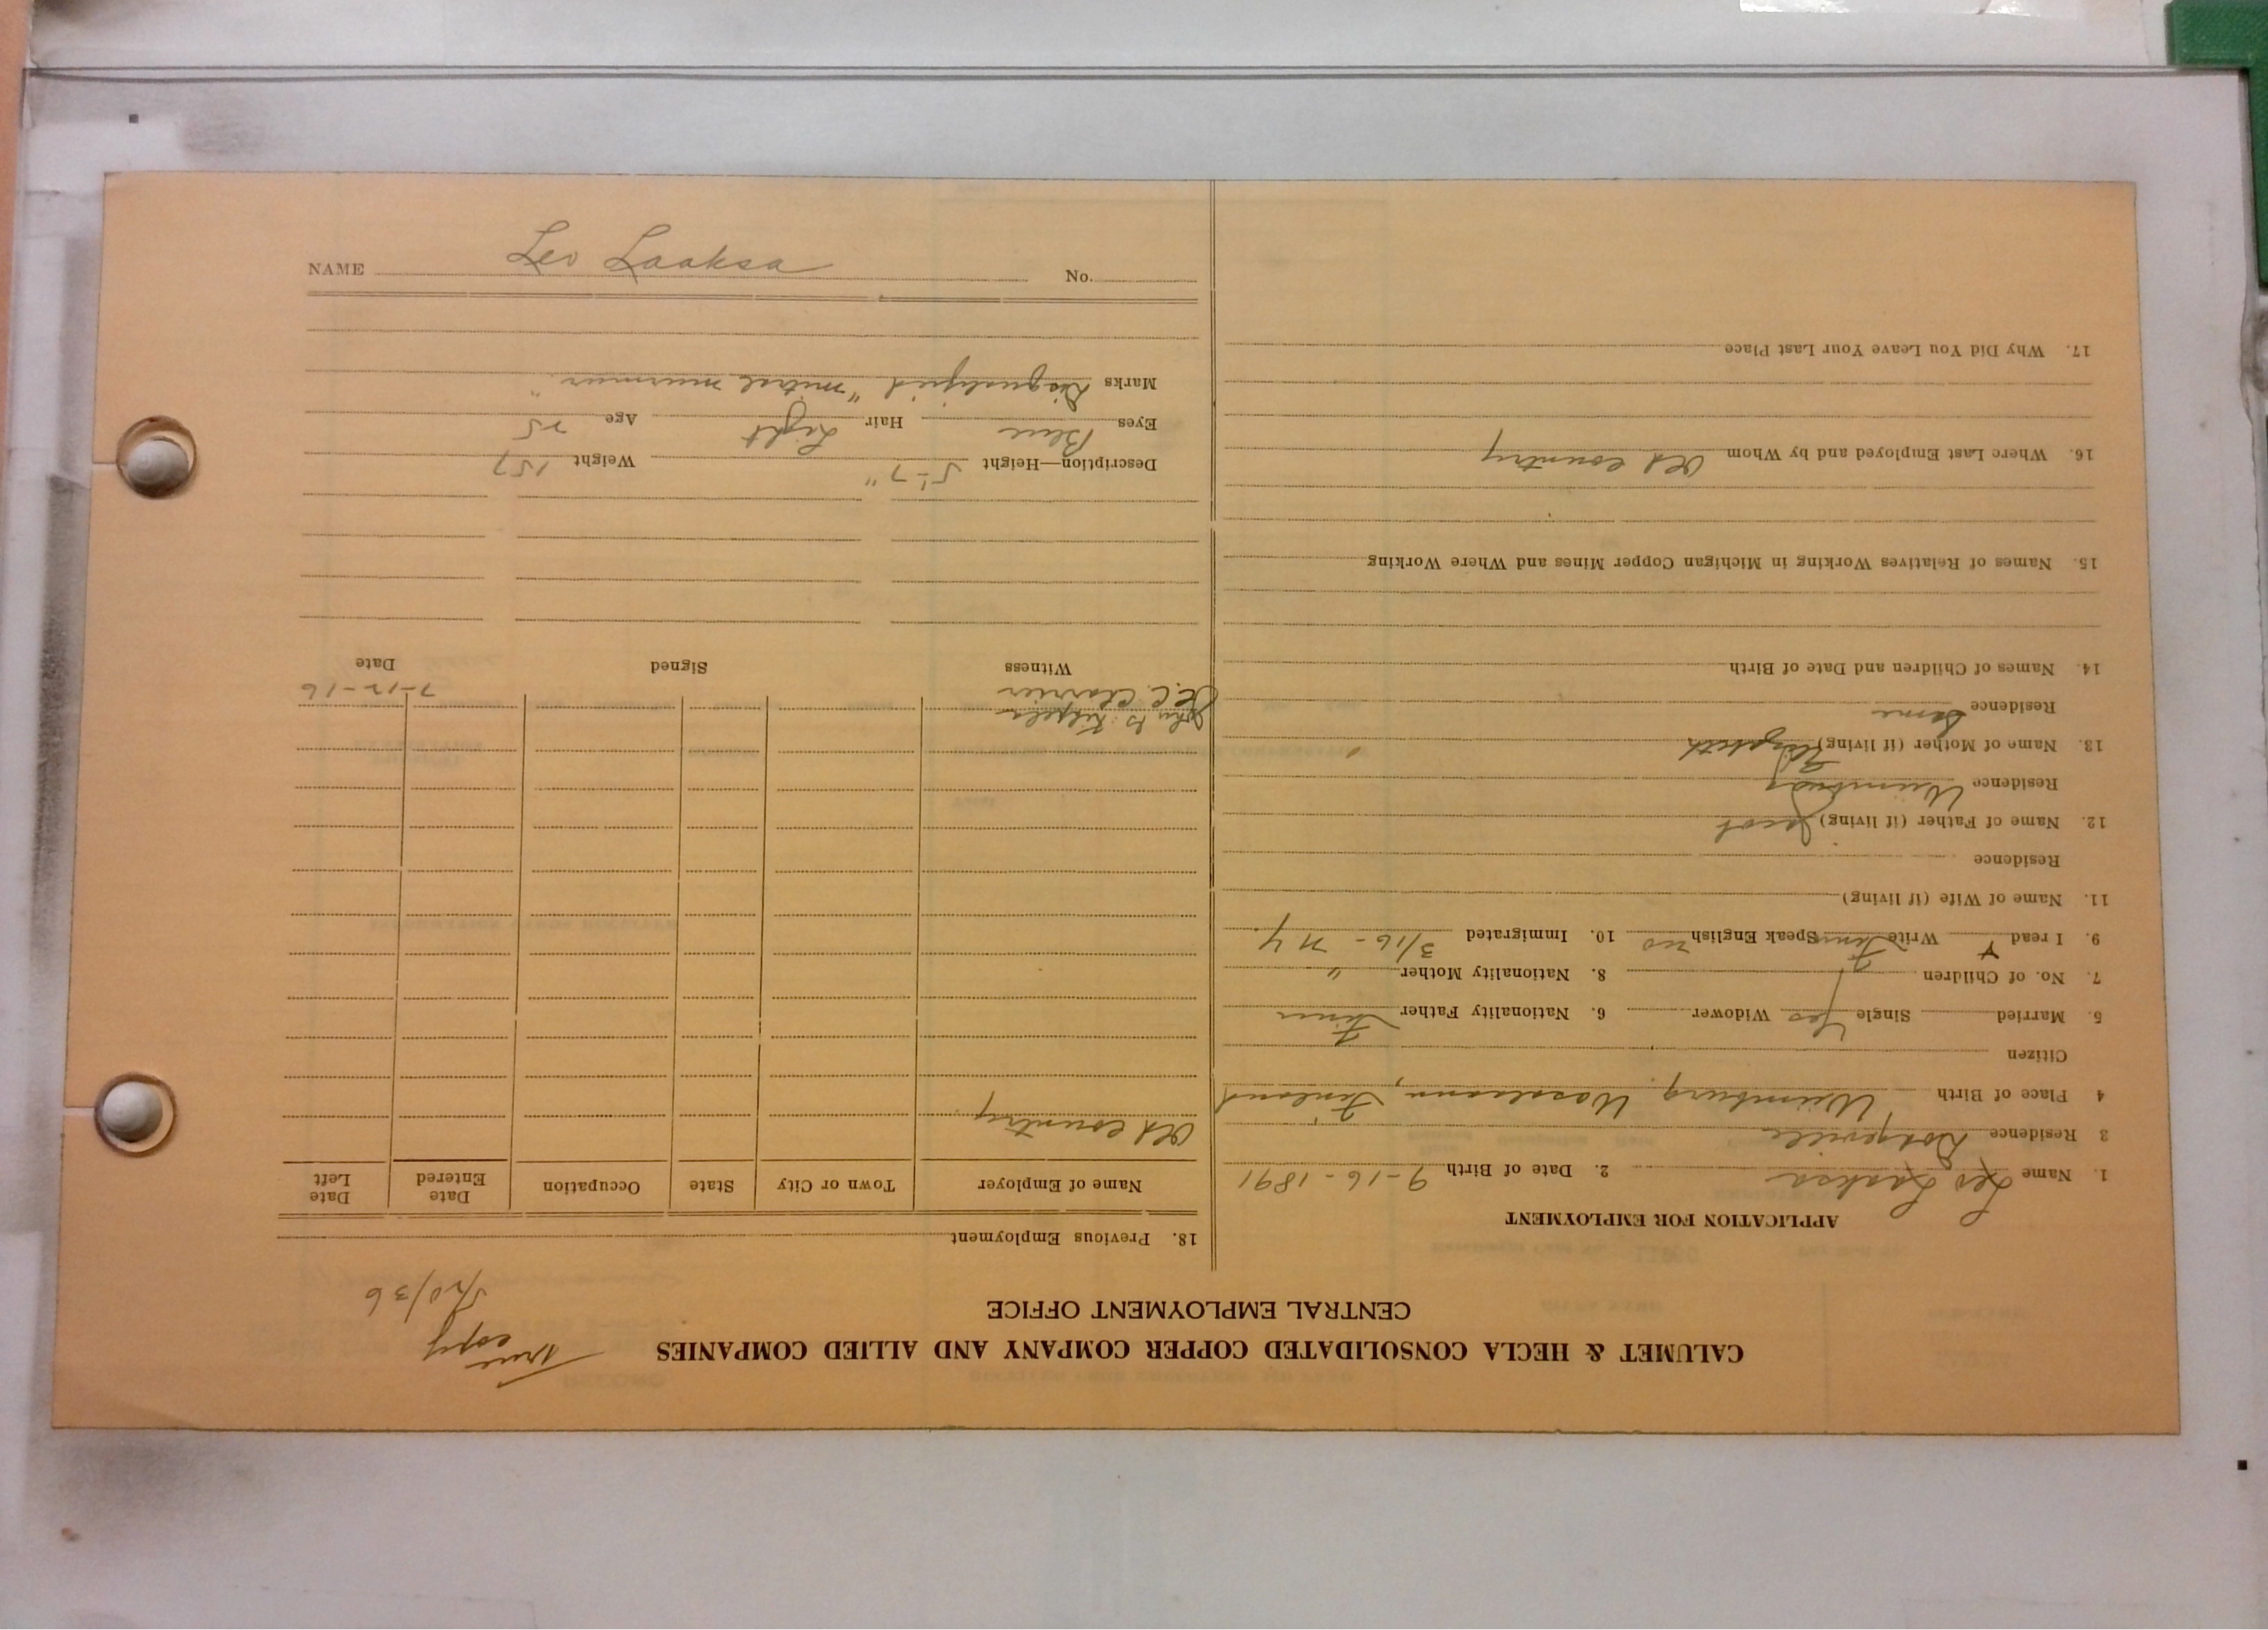 CALUMET & HECLA CONSOLIDATED COPPER COMPANY AND ALLIED COMPANIES
True copy
5/20/36
CENTRAL EMPLOYMENT OFFICE
APPLICATION FOR EMPLOYMENT
1. Name Leo Laaksa 2. Date of Birth 9-16-1891
3 Residence
4 Place of Birth Wasalaani, Finland
Citizen
5. Married Single Yes Widower 6. Nationality Father Finn
7. No. of Children 8. Nationality Mother "
9. I read Y Write Finn Speak English no 10. Immigrated 3/16 - N Y.
11. Name of Wife (if living)
Residence
12. Name of Father (if living) Jacob
Residence
13. Name of Mother (if living) Elizabeth
Residence Same
14. Names of Children and Date of Birth
15. Names of Relatives Working in Michigan Copper Mines and Where Working
16. Where Last Employed and by Whom Old Country
17. Why Did You Leave Your Last Place
18. Previous Employment
Name of Employer Town or City State Occupation Date Entered Date Left
Old Country
John
7-12-16
Witness Signed Date
Description—Height 5'-7" Weight 157
Eyes Blue Hair Light Age 25
Marks Disqualified "mitral murmur"
NAME Leo Laaksa No.